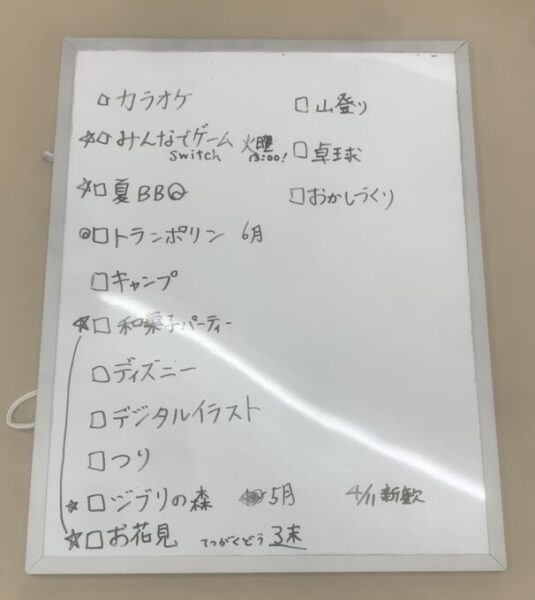 □カラオケ
☆□みんなでゲーム 火曜
switch 13:00!
☆□夏BBQ
◎□トランポリン 6月
□キャンプ
☆□和菓子パーティー
□ディズニー
□デジタルイラスト
□つり
☆□ジブリの森 5月 4/11 新歓
☆□お花見 てつがくどう 3末
□山登り
□卓球
□おかしづくり